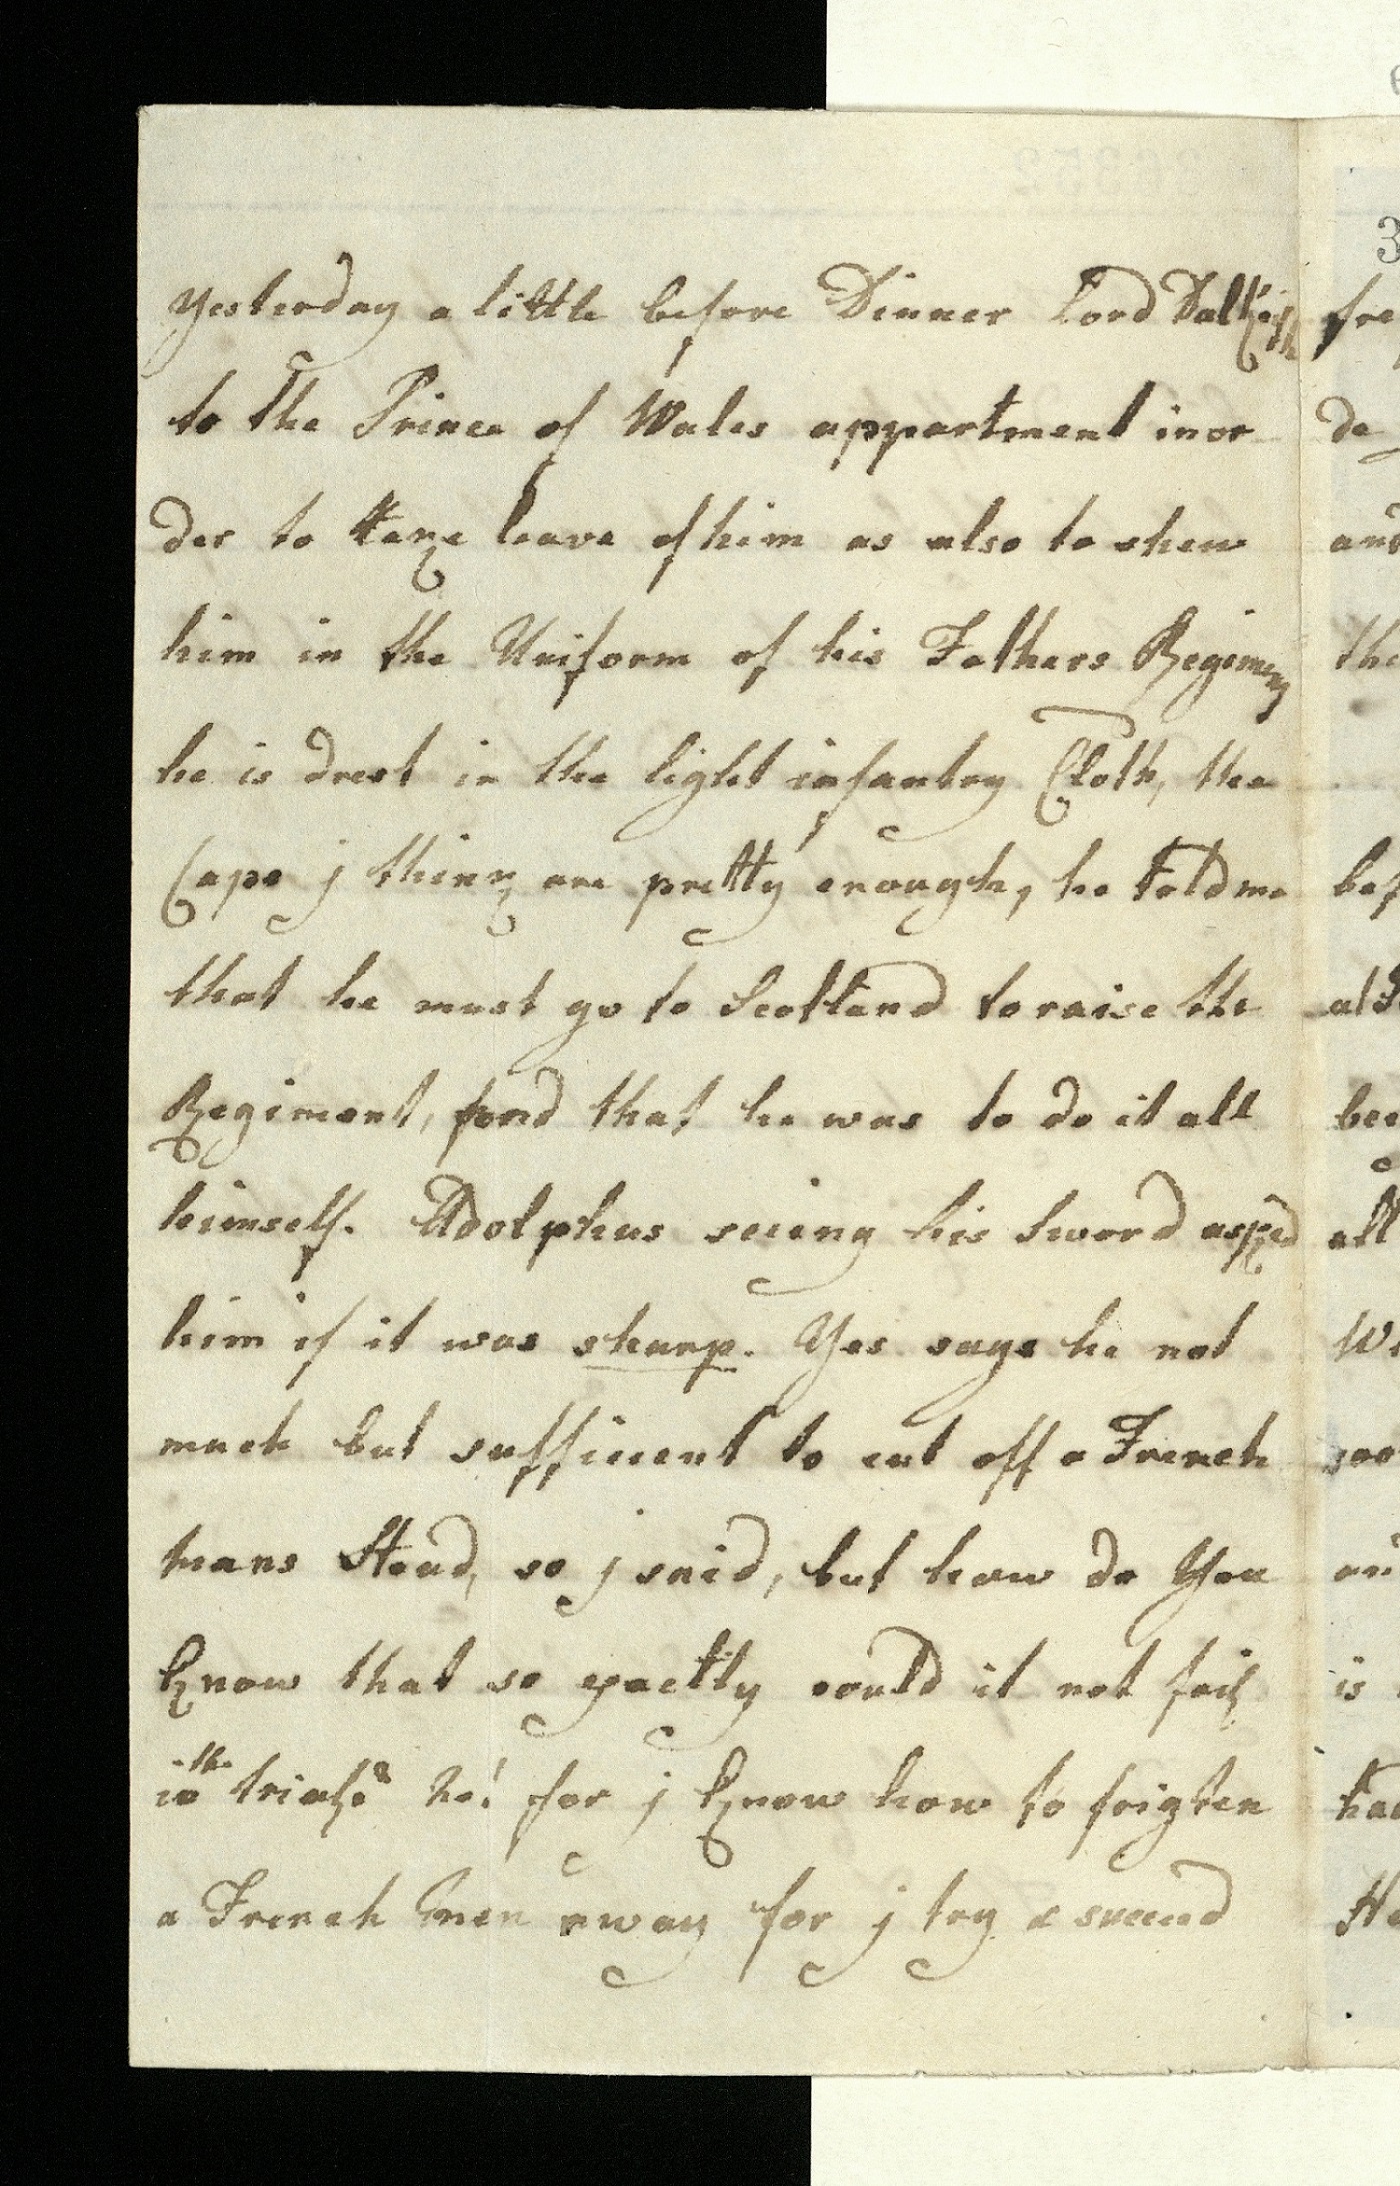 Yesterday a little before Dinner Lord Dalkeith
to the Prince of Wales appartment inor
der to take leave of him as also to shew
him in the Uniform of his Fathers Regimen
he is drest in the light infantry Cloth, the
Cape j think are pretty enough, he told me
that he must go to Scotland to raise the
Regiment, and that he was to do it all
himself. Adolphus seing his Sword asked
him if it was sharp. Yes says he not
much but sufficent to cut off a French
mans Head, so j said, but how do You
know that so exactly could it not fail
in the trials No! for j know how to frigten
a French Men away for j try a sword
fre
de
and
the
bef
als
bee
all
Wi
soo
an
is
had
He
3